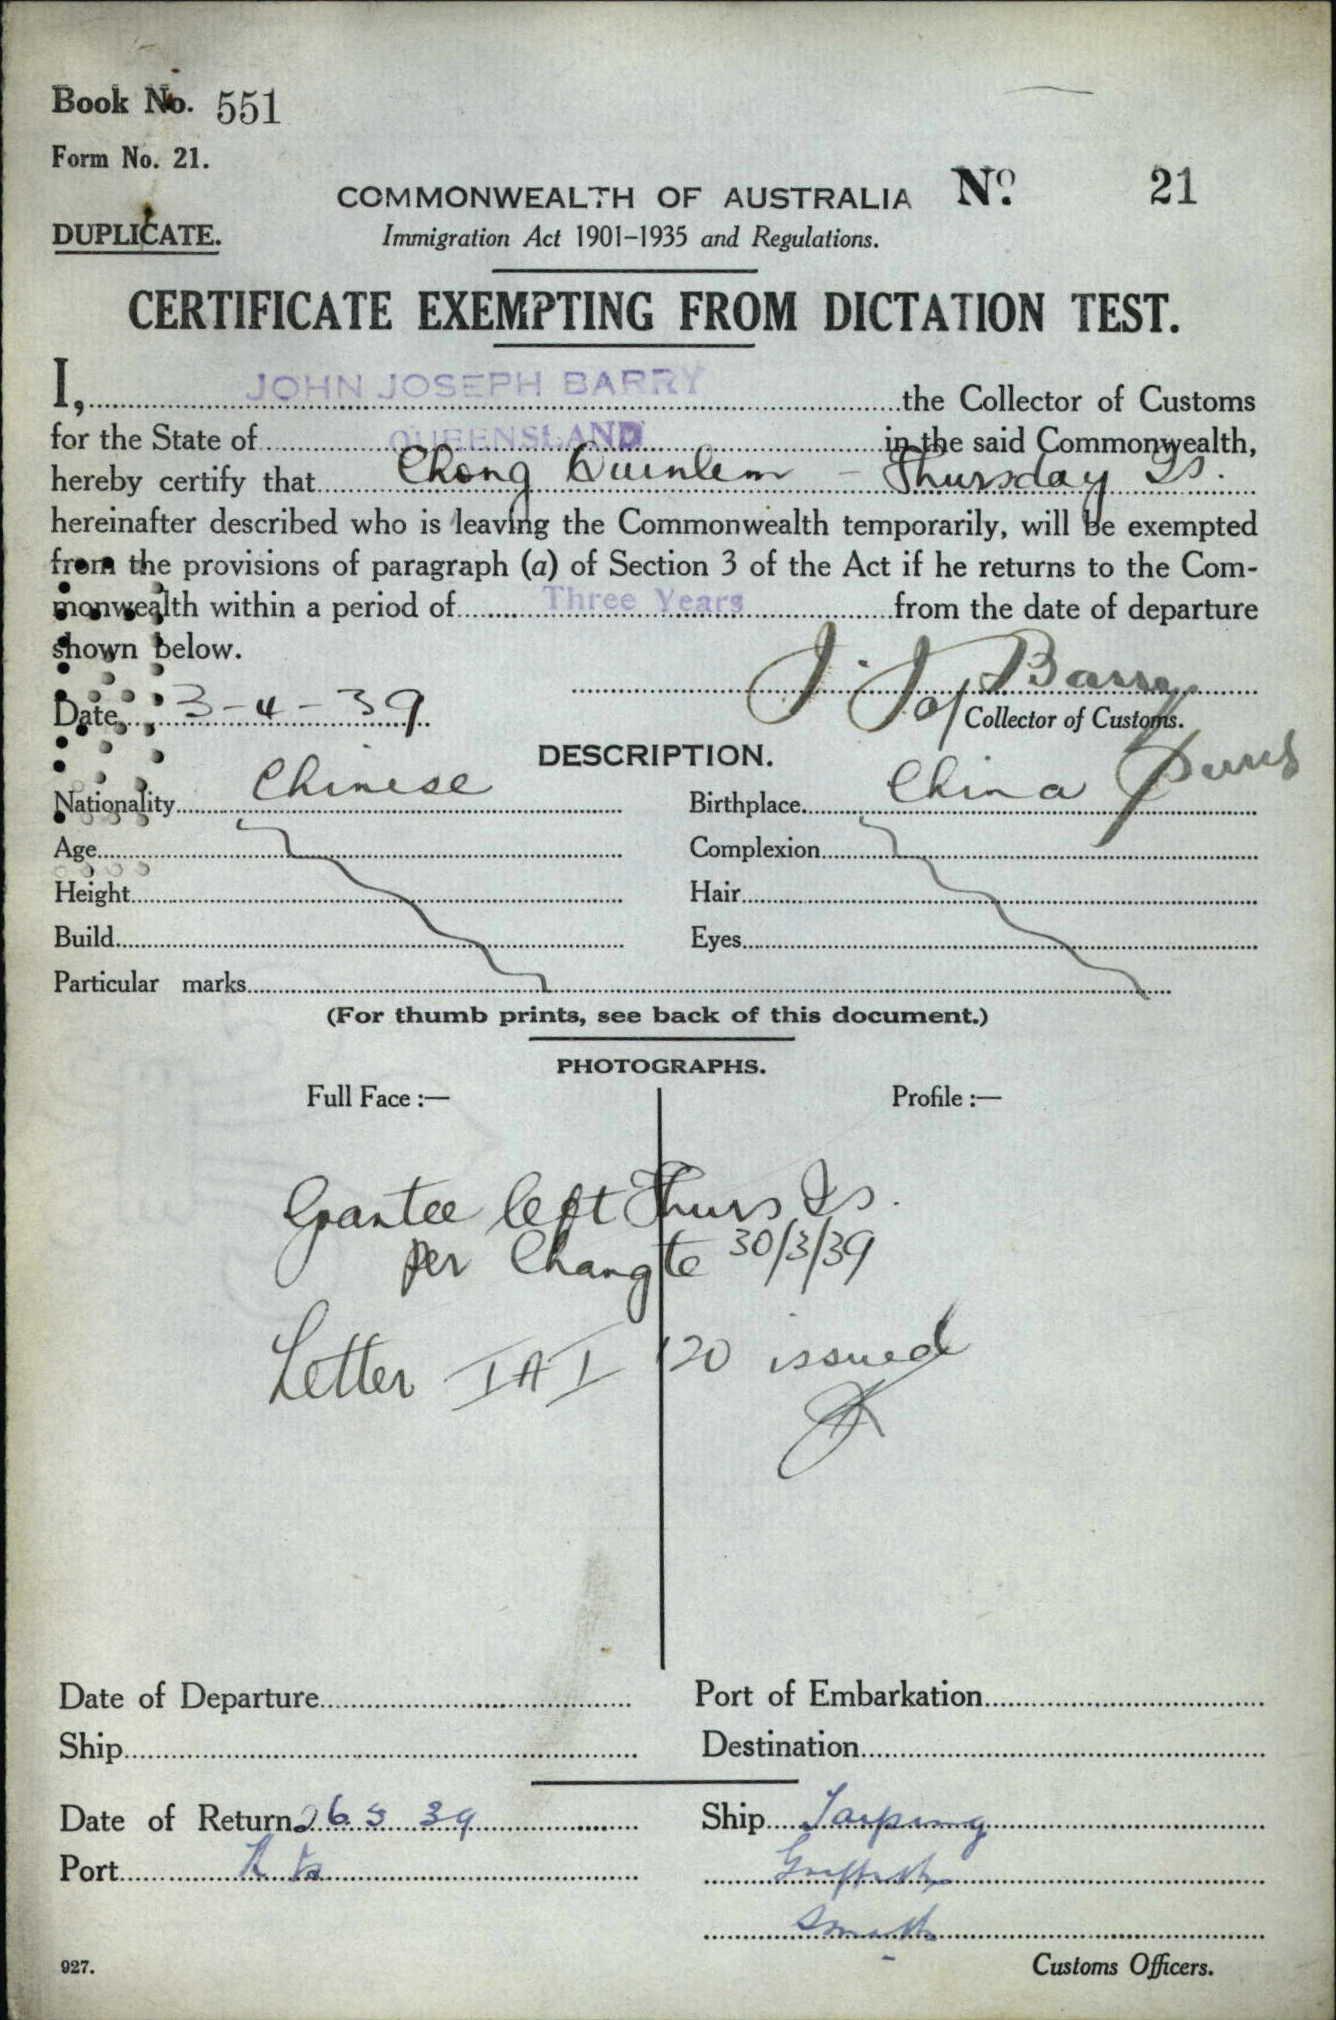 Book No. 551
Form No. 21.
COMMONWEALTH OF AUSTRALIA No. 21
DUPLICATE.
Immigration Act 1901-1935 and Regulations.
CERTIFICATE EXEMPTING FROM DICTATION TEST.
I, JOHN JOSEPH BARRY the Collector of Customs
for the State of QUEENSLAND in the said Commonwealth,
hereby certify that Chong Quinlem - Thursday Is.
hereinafter described who is leaving the Commonwealth temporarily, will be exempted
from the provisions of paragraph (a) of Section 3 of the Act if he returns to the Com-
monwealth within a period of Three Years from the date of departure
shown below.
J. J. Barry
Date 3-4-39
Collector of Customs.
DESCRIPTION.
Nationality Chinese Birthplace China
Age Complexion
Height Hair
Build Eyes
Particular marks
(For thumb prints, see back of this document.)
PHOTOGRAPHS.
Full Face :— Profile :—
Grantee left Thurs Is.
per Changte 30/3/39
Letter IAI 120 issued
Date of Departure Port of Embarkation
Ship Destination
Date of Return 26 5 39 Ship Taiping
Port Griffith
Smith
927. Customs Officers.